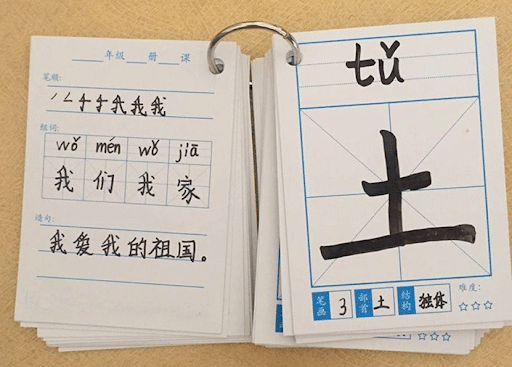 ____年级____册____课
笔顺:
我
组词:
wǒ mén wǒ jiā
我 们 我 家
造句:
我爱我的祖国。
tǔ
土
笔画 3 部首 土 结构 独体
难度:
☆☆☆